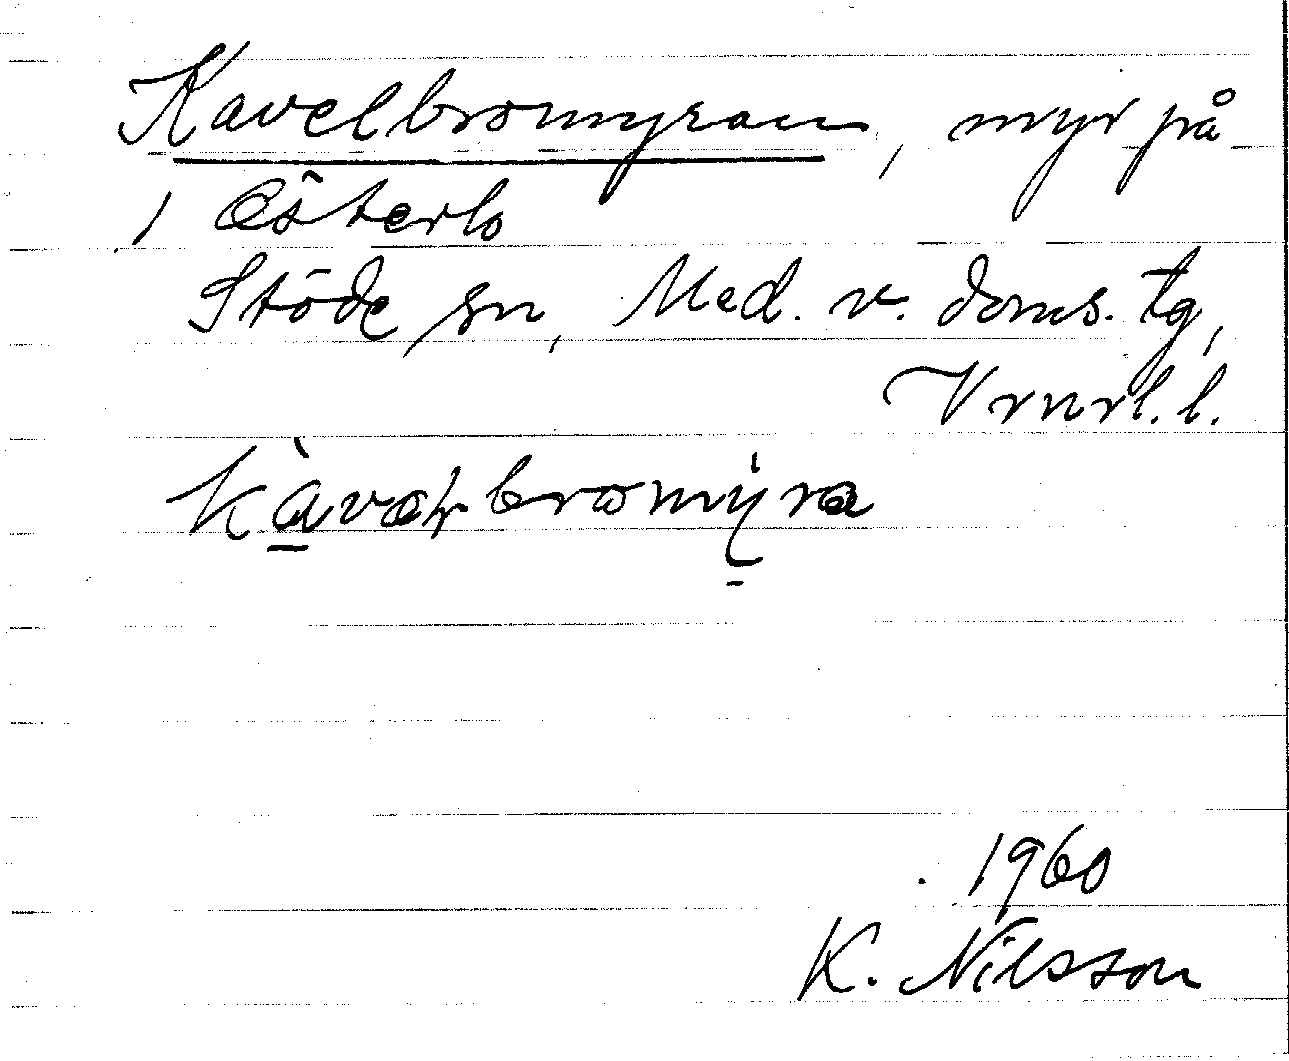 Kavelbromyran, myr på
1 Österlo
Stöde sn, Med. v. doms. tg,
Vrnrl. l.
1960
K. Nilsson